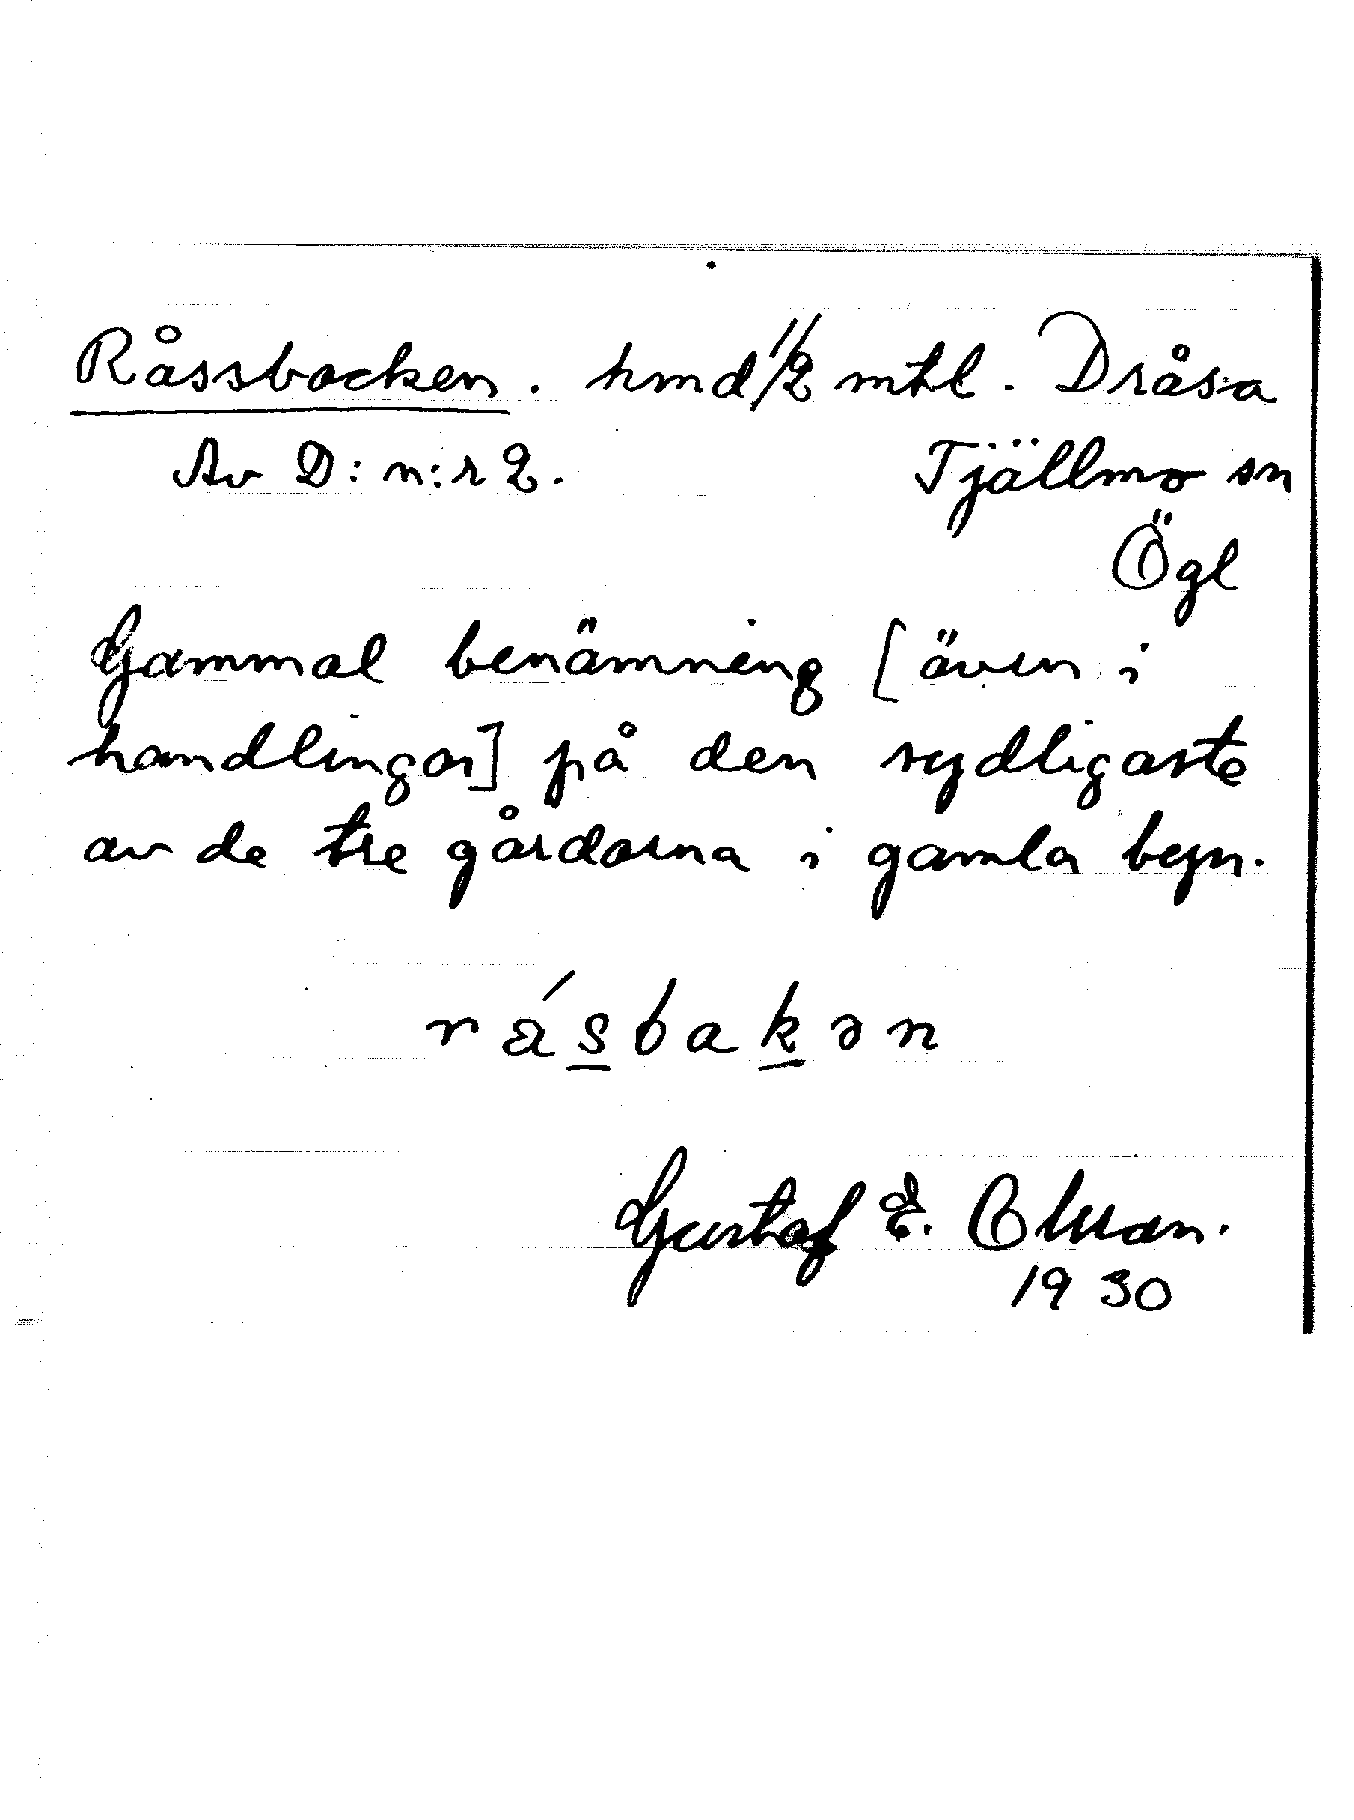 Råssbacken. hmd 1/2 mtl. Dråsa
Av D: n:r 2. Tjällmo sn
Ögl
Gammal benämning [även i
handlingar] på den sydligaste
av de tre gårdarna i gamla byn.
råsbakən
Gustaf E.
1930